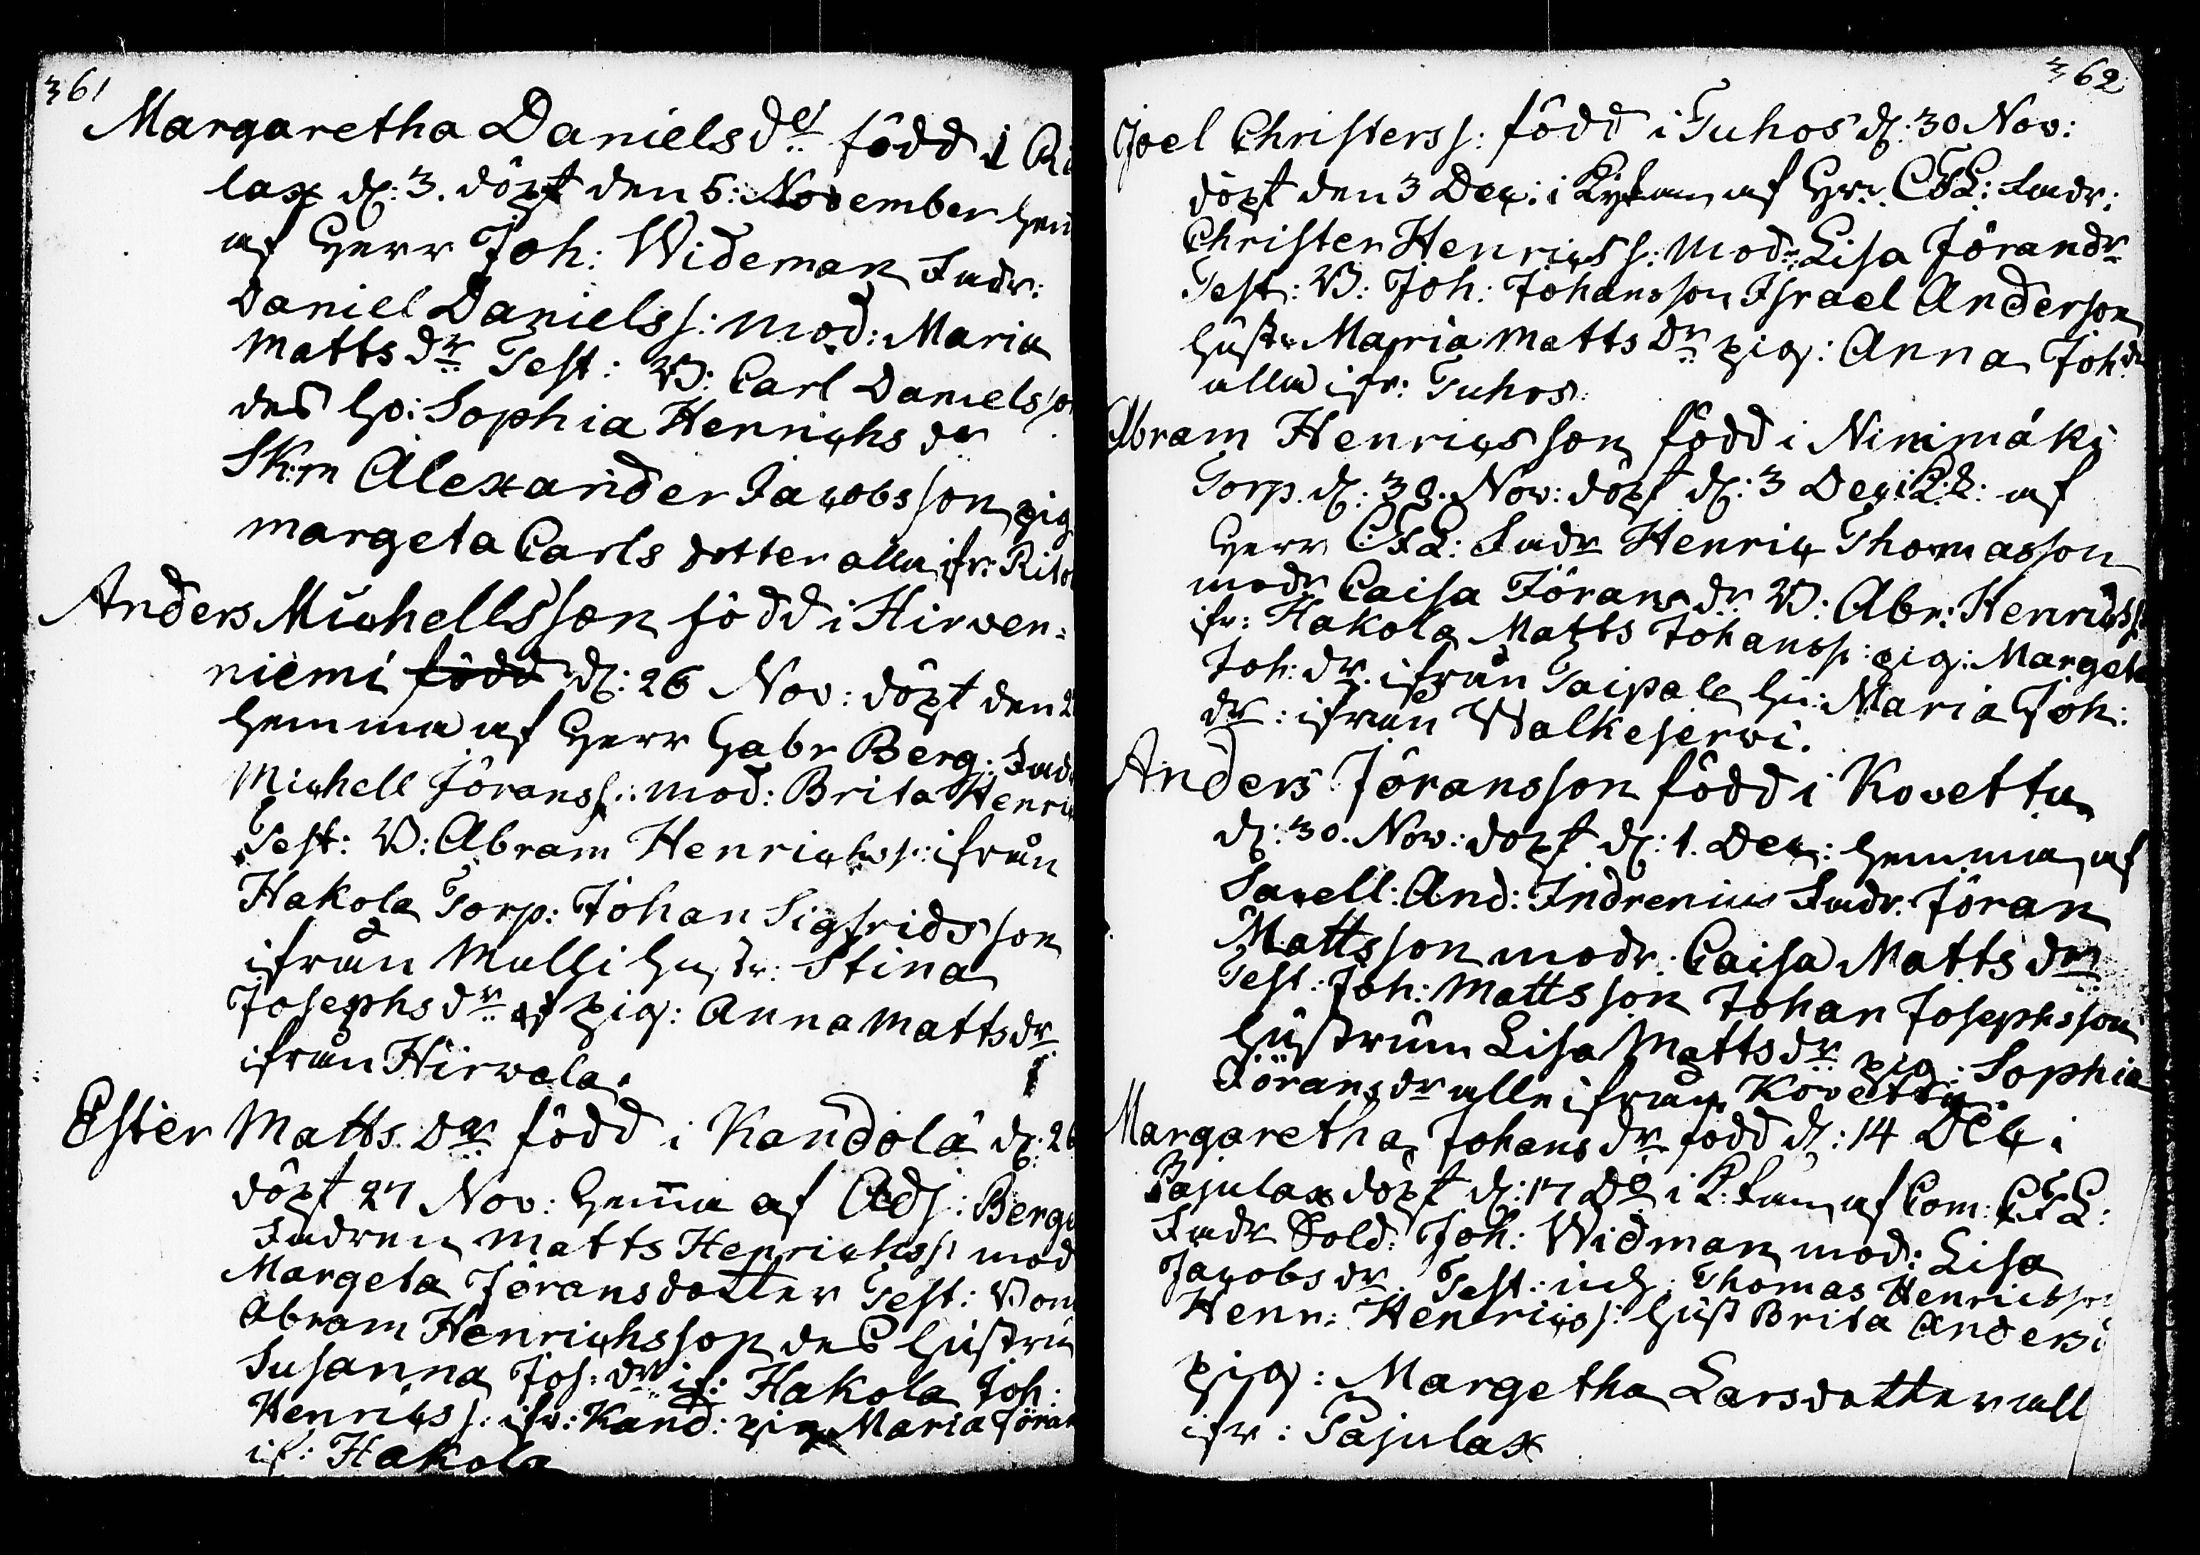 361
Margaretha Daniels dr född i Ri
lax d: 3. döpt den 5: November hem
af Herr Joh: Wideman Fadr:
Daniel Danielss: mod: Maria
Matts dr Test: B: Carl Danielsso
des ho: Sophia Henrichs dr
Skm Alexander Jacobsson pig
margeta Carls dotter alla ifr: Rito
Anders Michellsson född i Hirven=
niemi född d: 26 Nov: döpt den 2
hemma af Herr Gabr Berg: Fad
Michell Jöranss: mod: Brita Henri
Test: B: Abram Henrichss: ifrån
Hakola Torp: Johan Sigfridsson
ifrån Mulli hustr: Stina
Josephs dr pig: Anna Matts dr
ifrån Hirvola.
Ester Matts dr född i Kandola d: 26
döpt 27 Nov: hemma af Adj: Berg
Fadren Matts Henrichss: mod
Margeta Jöransdotter Test: Bon
Abram Henrichsson des hustru
Susanna Jos: dr if: Hakola Joh:
Henricss: ifr: Kand: pig Maria Jöran
if: Hakola
362
Joel Christerss: född i Tuhos d: 30 Nov:
döpt den 3 Dec: i Kyrkan af Hr: CFL: Fadr:
Christer Henricss: Mod: Lisa Jörandr
Test: B: Joh: Johansson Israel Anderson
hustr Maria Matts dr pig: Anna Joh dr
alla ifr: Tuhos.
Abram Henricsson född i Ninimäki
Torp. d: 30. Nov: döpt d: 3 Dec: i K:k: af
Herr CFL: Fadr Henric Thomasson
modr Caisa Jörans dr B: Abr: Henricss:
ifr: Hakola Matts Johanss: pig: Margeta
Joh: dr. ifrån Taipale hu: Maria Joh:
dr: ifrån Walkeserwi.
Anders Jöransson född i Kovettu
d: 30. Nov: döpt d: 1. Dec: hemma af
Sacell: And: Indrenius Fadr. Jöran
Mattsson modr: Caisa Matts dr
Test: Joh: Mattsson Johan Josephsson
hustrun Lisa Matts dr pig: Sophia
Jörans dr alle ifrån Kovettu.
Margaretha Johans dr född d: 14 Dec i
Pajulax döpt d: 17 Do i K:kan af Com: CFL:
Fadr Sold: Joh: Widman mod: Lisa
Jacobs dr Test: Thomas Henricsson
Henr: Henricss: hust Brita Anders
pig: Margetha Larsdotter all
ifr: Pajulax